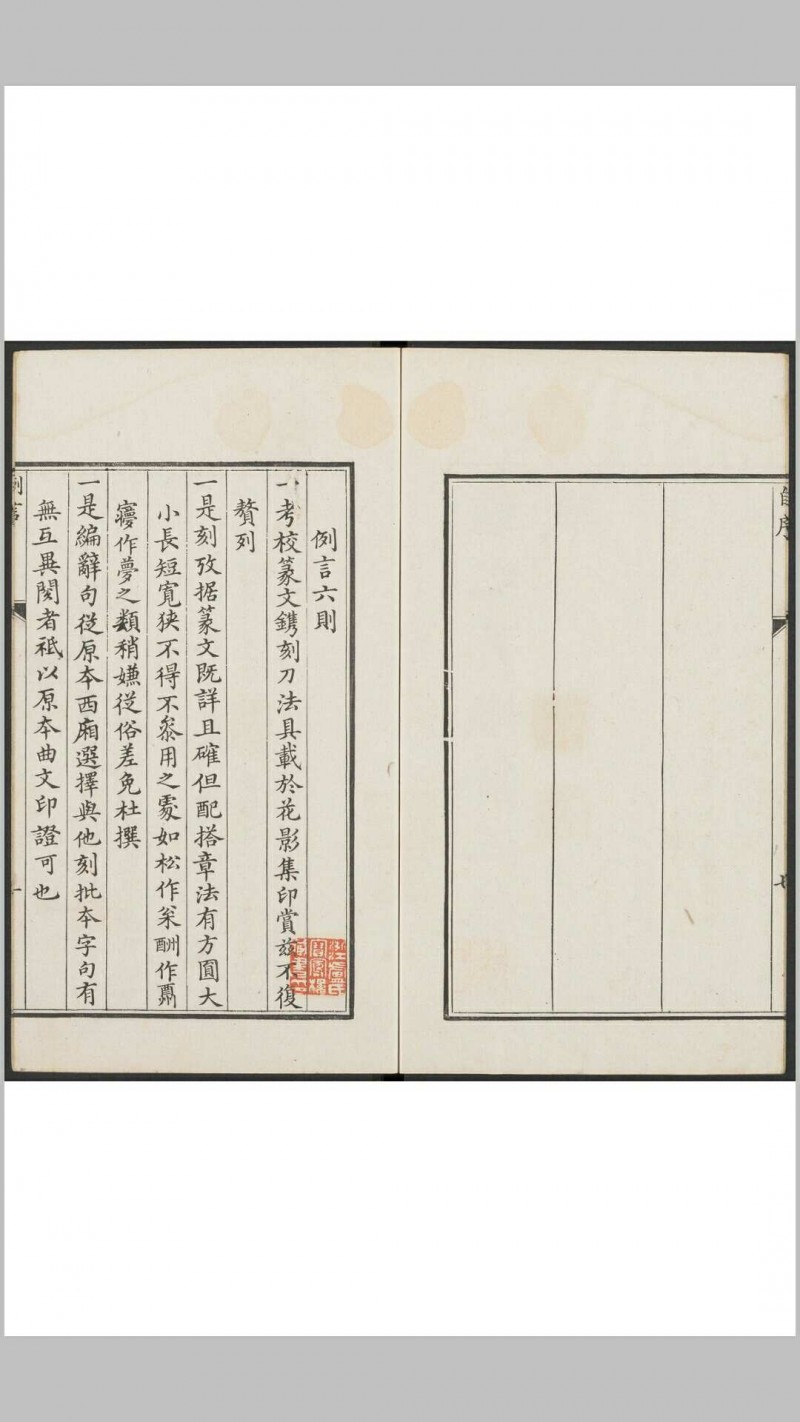 自序
七
例言六則
一考校篆文鐫刻刀法具載於花影集印賞兹不復
贅列
一是刻攷据篆文既詳且確但配搭章法有方圓大
小長短寬狹不得不叅用之處如松作枀酬作
㝱作夢之類稍嫌從俗差免杜撰
一是編辭句從原本西廂選擇與他刻批本字句有
無互異閱者祗以原本曲文印證可也
例言
一